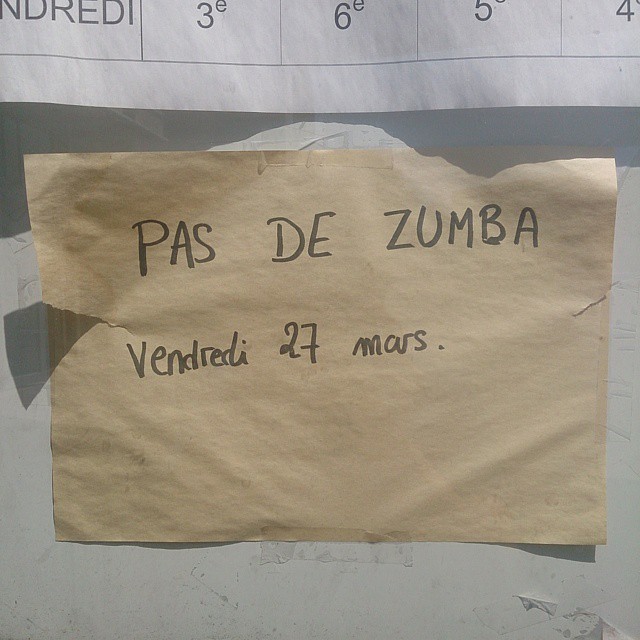 NDREDI 3e 6e 5e 4
PAS DE ZUMBA
Vendredi 27 mars.